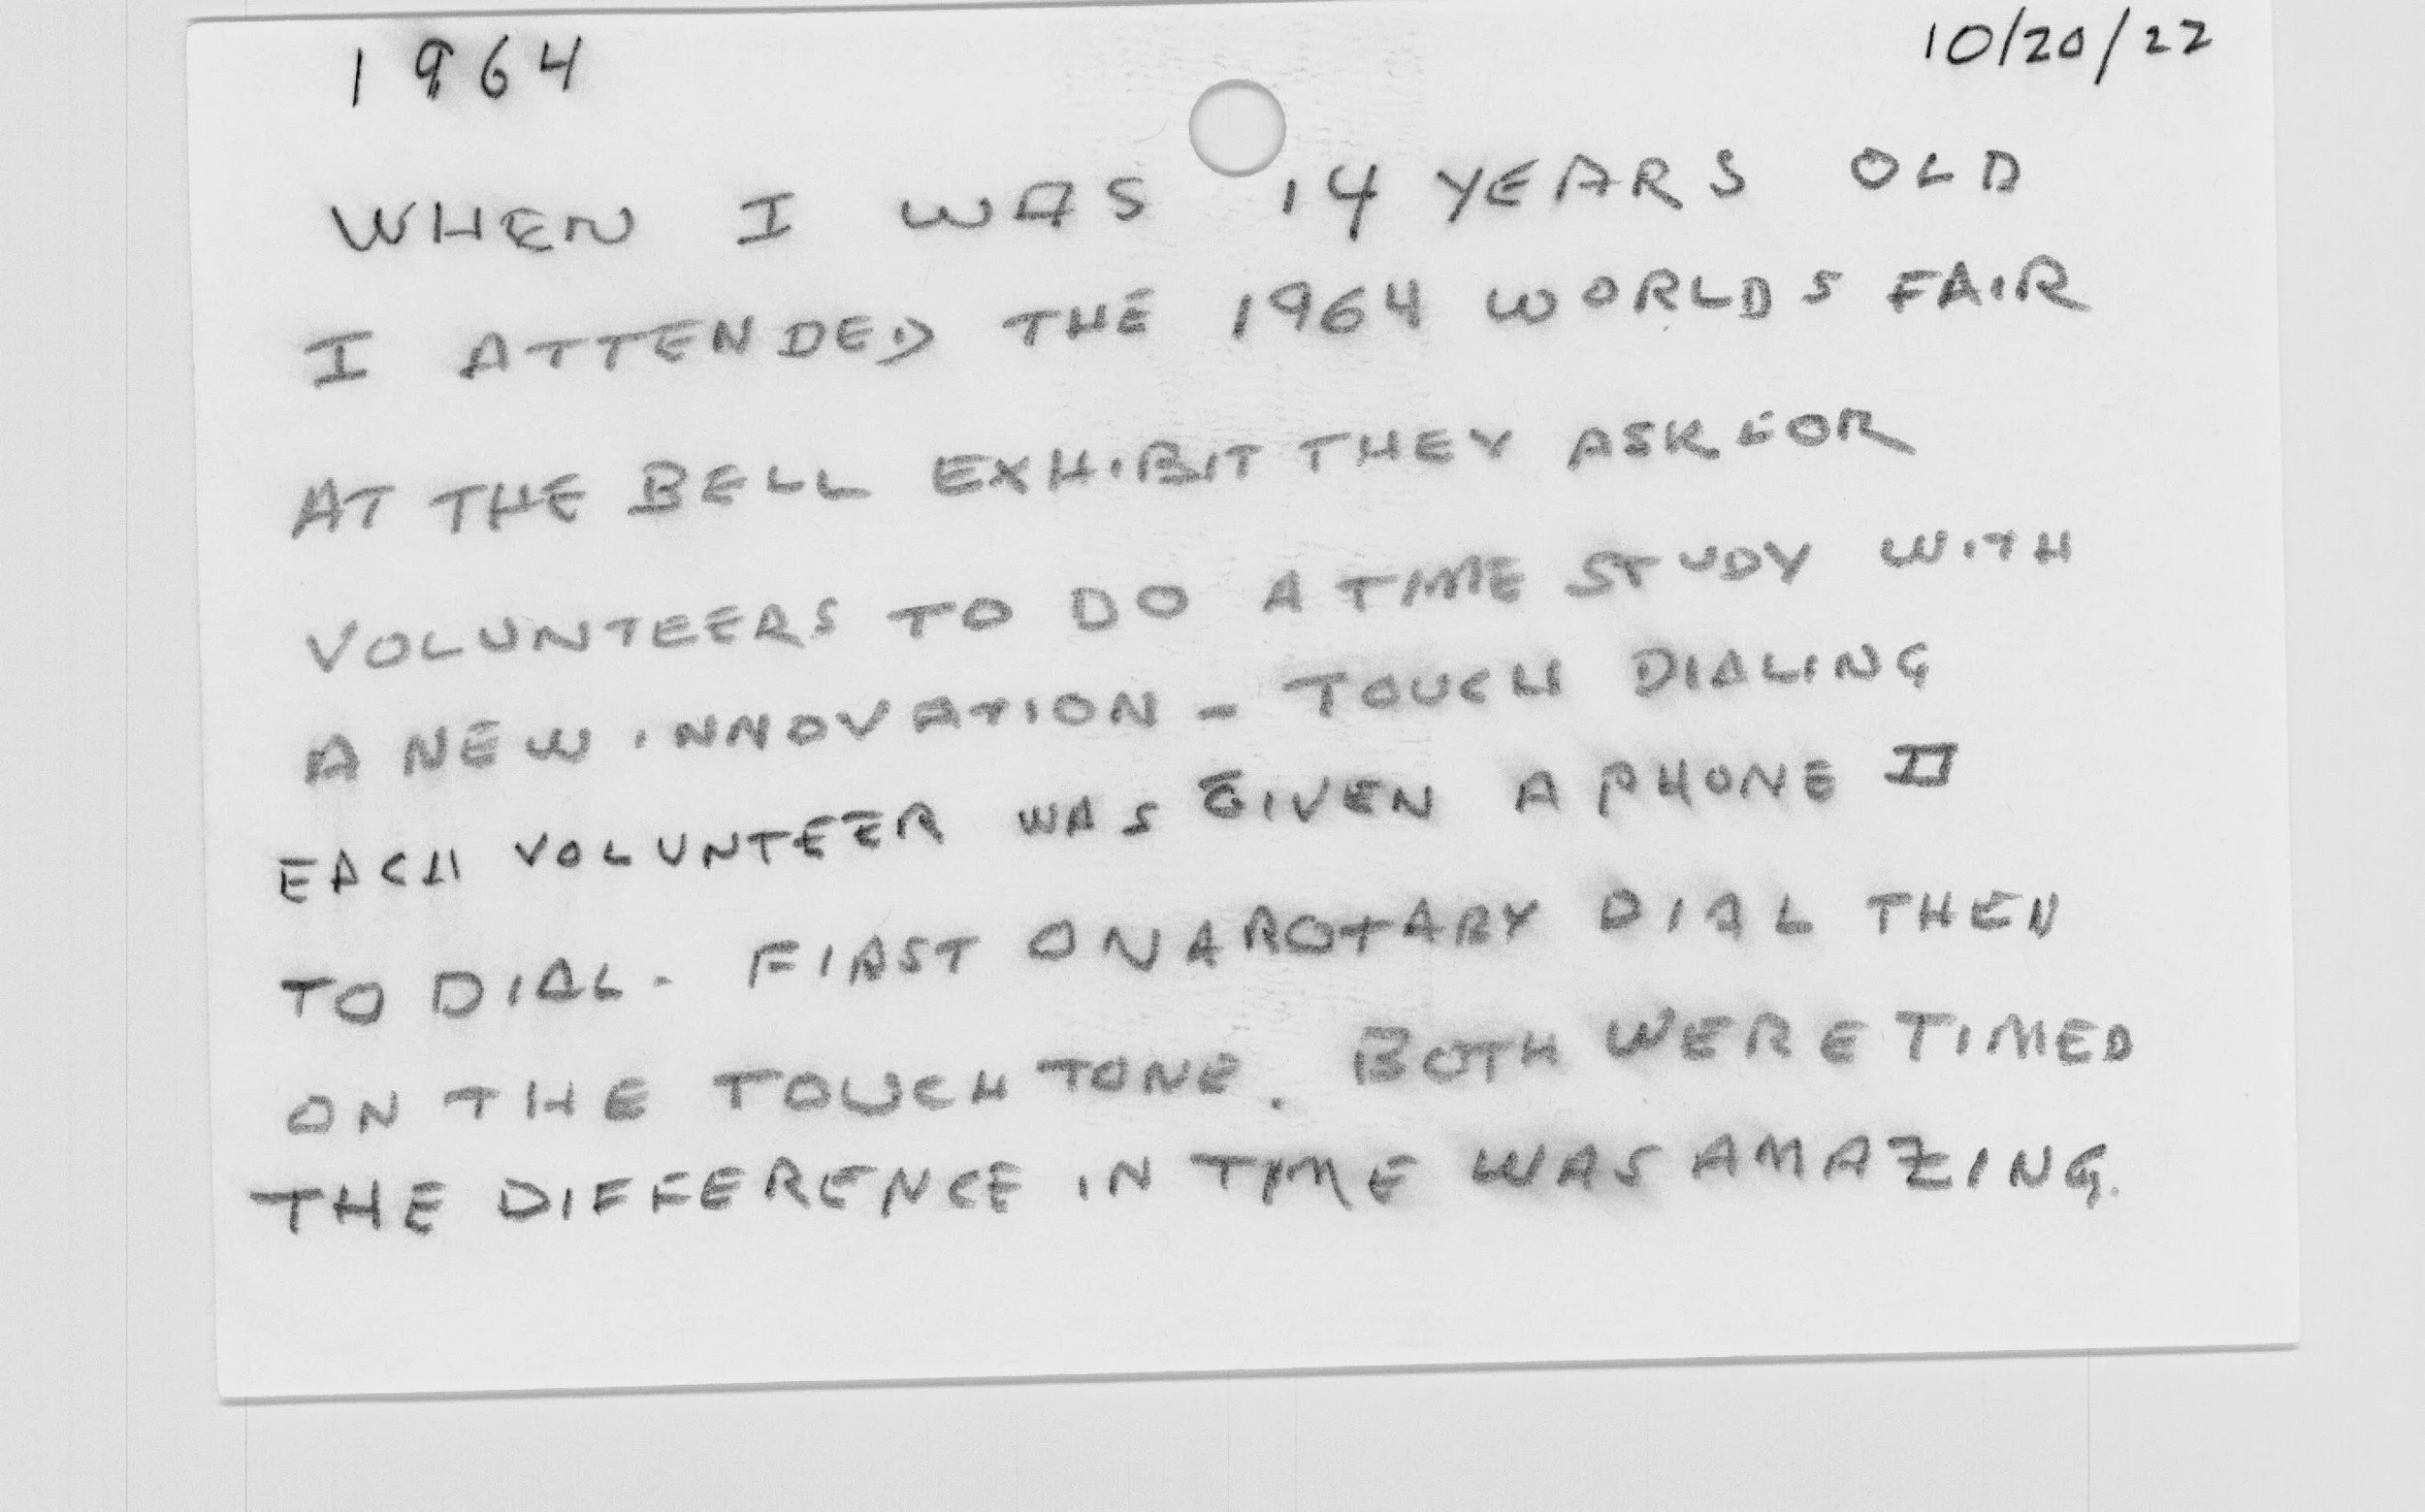 1964 10/20/22
WHEN I WAS 14 YEARS OLD
I ATTENDED THE 1964 WORLDS FAIR
AT THE BELL EXHIBIT THEY ASK FOR
VOLUNTEERS TO DO A TIME STUDY WITH
A NEW INNOVATION - TOUCH DIALING
EACH VOLUNTEER WAS GIVEN A PHONE
TO DIAL. FIRST ON A ROTARY DIAL THEN
ON THE TOUCH TONE. BOTH WERE TIMED
THE DIFFERENCE IN TIME WAS AMAZING.